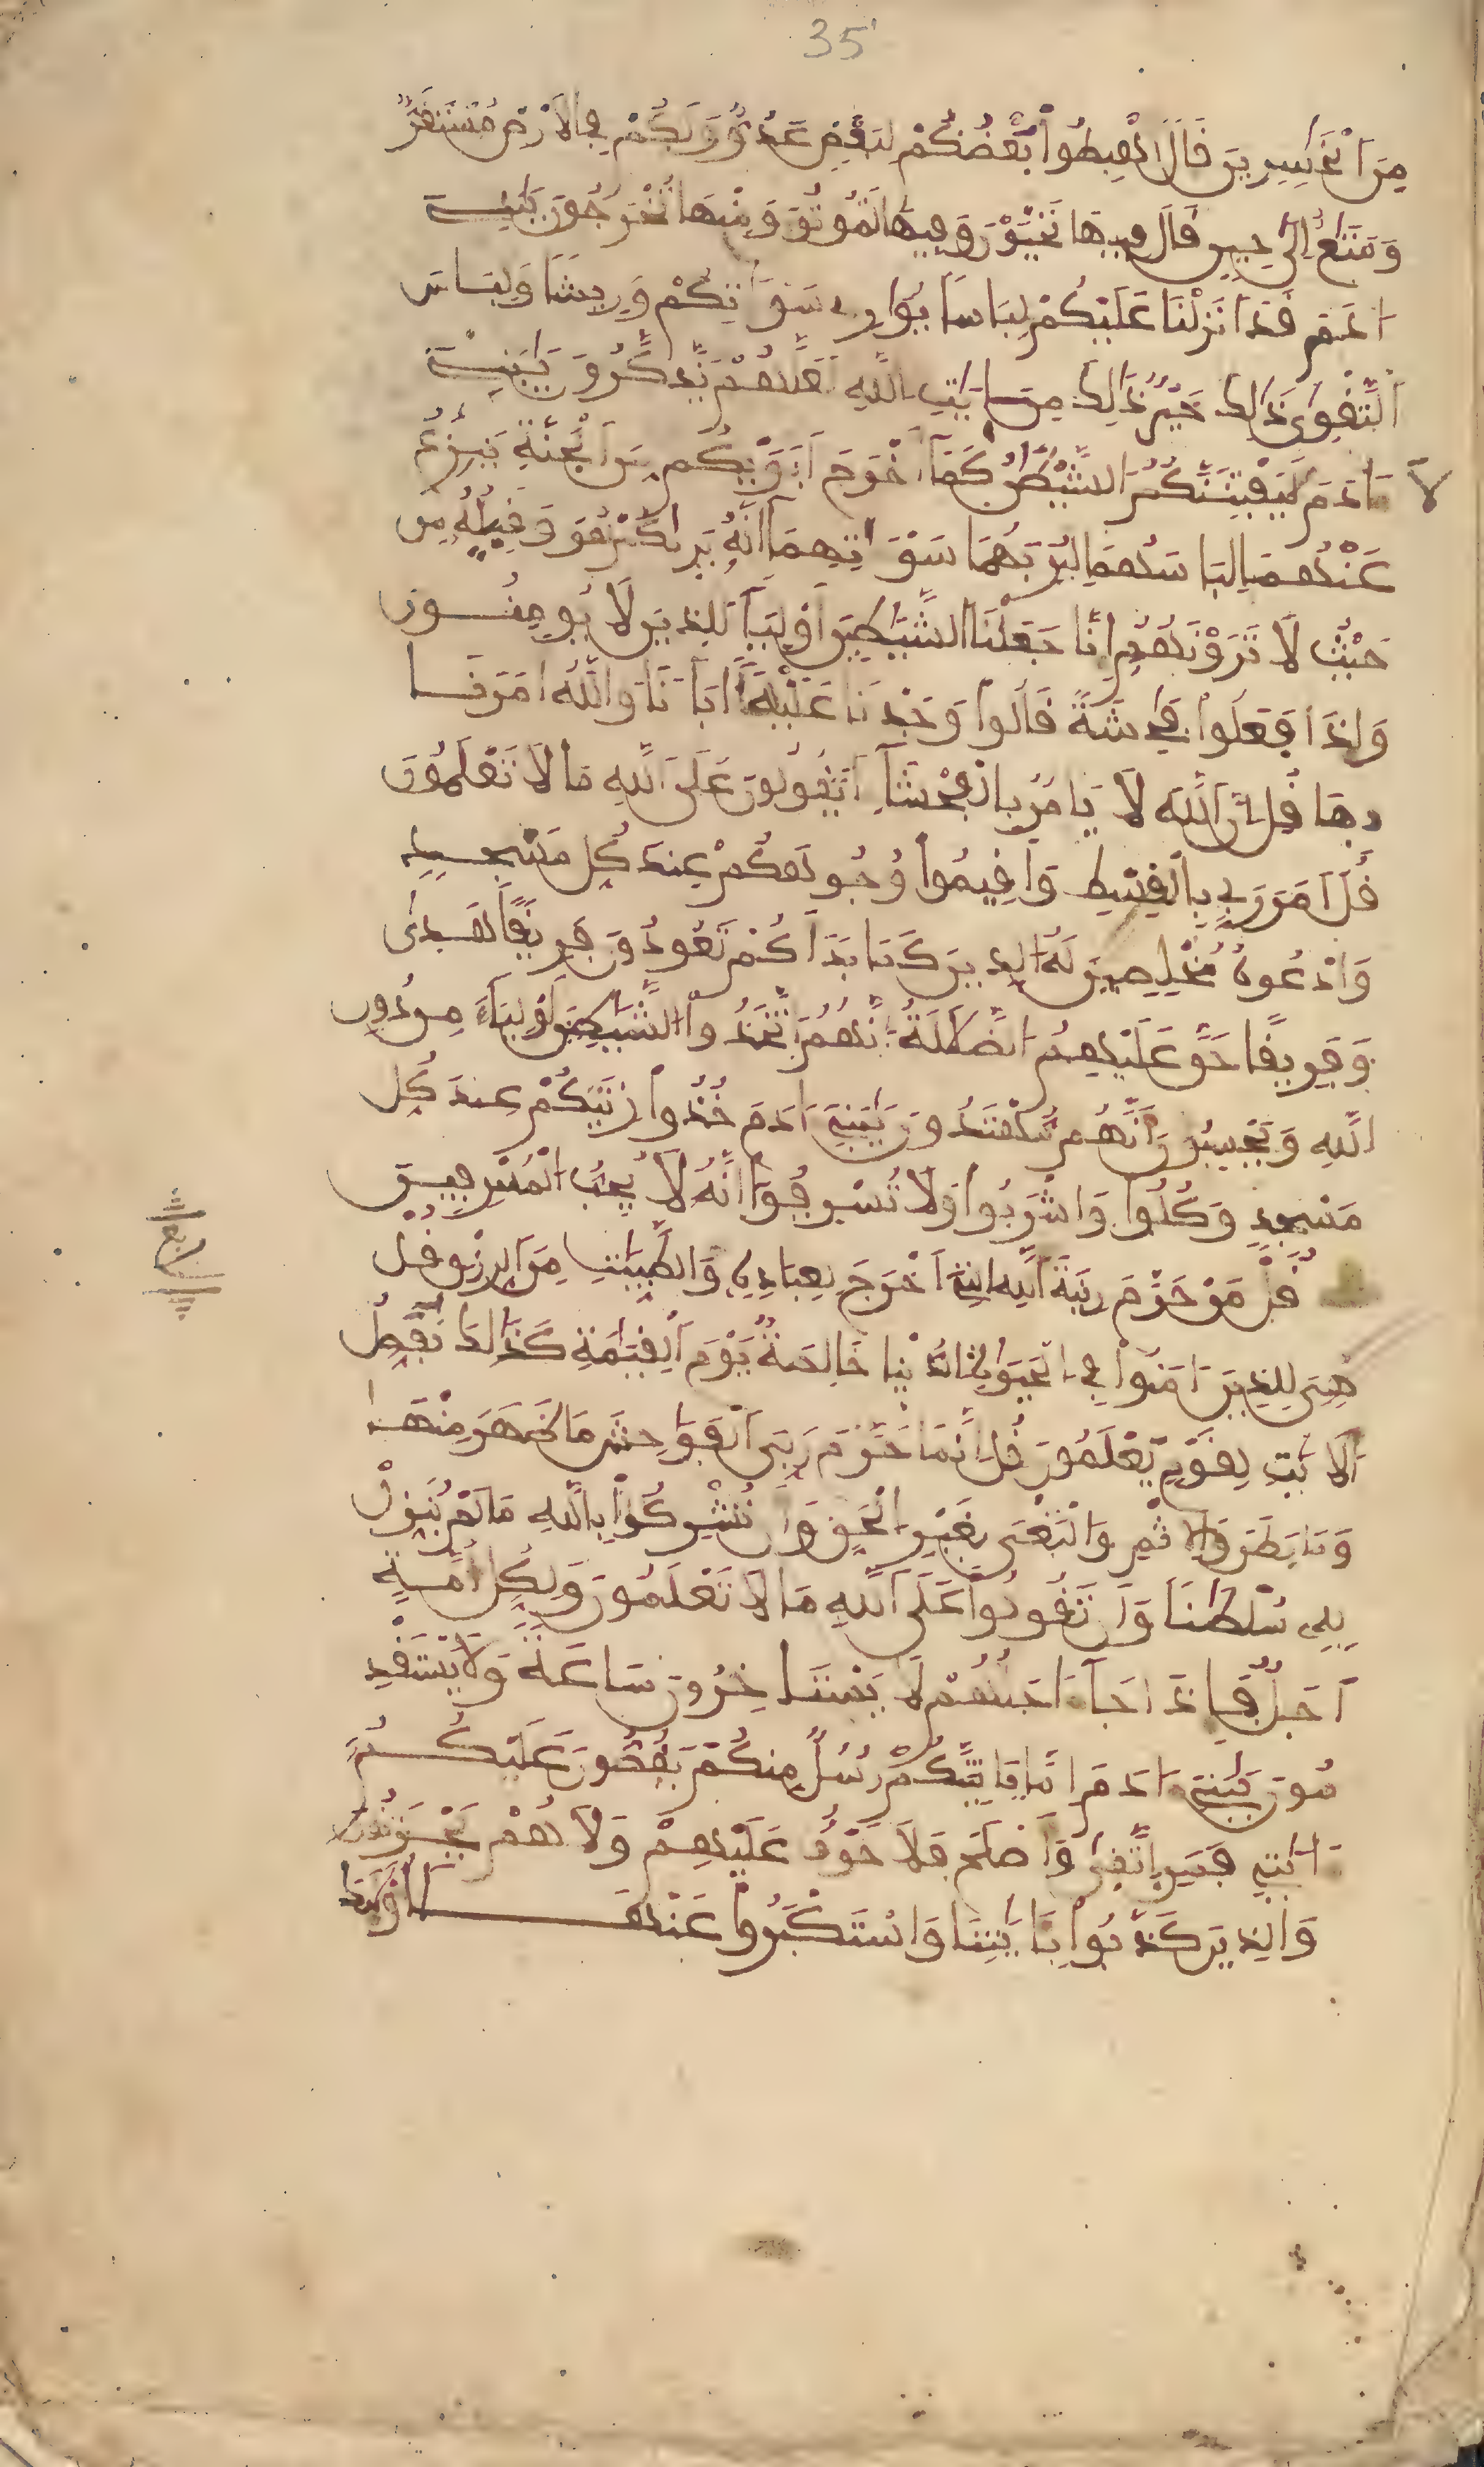 35
مِنَ ٱلْخَٰسِرِينَ قَالَ ٱهْبِطُوا۟ بَعْضُكُمْ لِبَعْضٍ عَدُوٌّ وَلَكُمْ فِى ٱلَارْضِ مُسْتَقَرٌّ
وَمَتَٰعٌ اِلَىٰ حِينٍ قَالَ فِيهَا تَحْيَوْنَ وَفِيهَا تَمُوتُونَ وَمِنْهَا تُخْرَجُونَ يَٰبَنِےٓ
ءَادَمَ قَدَ اَنزَلْنَا عَلَيْكُمْ لِبَاسًا يُوَٰرِى سَوْءَٰتِكُمْ وَرِيشًا وَلِبَاسَ
ٱلتَّقْوَىٰ ذَٰلِكَ خَيْرٌ ذَٰلِكَ مِنَ ايَٰتِ ٱللَّهِ لَعَلَّهُمْ يَذَّكَّرُونَ يَٰبَنِےٓ
ءَادَمَ لَا يَفْتِنَنَّكُمُ ٱلشَّيْطَٰنُ كَمَآ أَخْرَجَ أَبَوَيْكُم مِّنَ ٱلْجَنَّةِ يَنزِعُ
عَنْهُمَا لِبَاسَهُمَا لِيُرِيَهُمَا سَوْءَٰتِهِمَآ إِنَّهُۥ يَرَىٰكُمْ هُوَ وَقَبِيلُهُۥ مِنْ
حَيْثُ لَا تَرَوْنَهُمُۥ إِنَّا جَعَلْنَا ٱلشَّيَٰطِينَ أَوْلِيَآءَ لِلذِينَ لَا يُومِنُونَ
وَإِذَا فَعَلُوا۟ فَٰحِشَةً قَالُوا۟ وَجَدْنَا عَلَيْهَآ ءَابَآءَنَا وَٱللَّهُ أَمَرَنَا
بِهَا قُلِ انَّ ٱللَّهَ لَا يَامُرُ بِٱلْفَحْشَآءِ اَتَقُولُونَ عَلَى ٱللَّهِ مَا لَا تَعْلَمُونَ
قُلَ اَمَرَ رَبِّى بِٱلْقِسْطِ وَأَقِيمُوا۟ وُجُوهَكُمْ عِندَ كُلِّ مَسْجِدٍ
وَٱدْعُوهُ مُخْلِصِينَ لَهُ ٱلدِّينَ كَمَا بَدَأَكُمْ تَعُودُونَ فَرِيقًا هَدَىٰ
وَفَرِيقًا حَقَّ عَلَيْهِمُ ٱلضَّلَٰلَةُ إِنَّهُمُ ٱتَّخَذُوا۟ ٱلشَّيَٰطِينَ أَوْلِيَآءَ مِن دُونِ
ٱللَّهِ وَيَحْسِبُونَ أَنَّهُم مُّهْتَدُونَ يَٰبَنِےٓ ءَادَمَ خُذُوا۟ زِينَتَكُمْ عِندَ كُلِّ
مَسْجِدٍ وَكُلُوا۟ وَٱشْرَبُوا۟ وَلَا تُسْرِفُوٓا۟ إِنَّهُۥ لَا يُحِبُّ ٱلْمُسْرِفِينَ
ربع
قُلْ مَنْ حَرَّمَ زِينَةَ ٱللَّهِ ٱلتِےٓ أَخْرَجَ لِعِبَادِهِۦ وَٱلطَّيِّبَٰتِ مِنَ ٱلرِّزْقِ قُلْ
هِىَ لِلذِينَ ءَامَنُوا۟ فِى ٱلْحَيَوٰةِ ٱلدُّنْيَا خَالِصَةٌ يَوْمَ ٱلْقِيَٰمَةِ كَذَٰلِكَ نُفَصِّلُ
ٱلَايَٰتِ لِقَوْمٍ يَعْلَمُونَ قُلِ انَّمَا حَرَّمَ رَبِّىَ ٱلْفَوَٰحِشَ مَا ظَهَرَ مِنْهَا
وَمَا بَطَنَ وَٱلِاثْمَ وَٱلْبَغْىَ بِغَيْرِ ٱلْحَقِّ وَأَن تُشْرِكُوا۟ بِٱللَّهِ مَا لَمْ يُنَزِّلْ
بِهِۦ سُلْطَٰنًا وَأَن تَقُولُوا۟ عَلَى ٱللَّهِ مَا لَا تَعْلَمُونَ وَلِكُلِّ أُمَّةٍ
اَجَلٌ فَإِذَا جَآءَ اجَلُهُمْ لَا يَسْتَاخِرُونَ سَاعَةً وَلَا يَسْتَقْدِ
مُونَ يَٰبَنِےٓ ءَادَمَ إِمَّا يَاتِيَنَّكُمْ رُسُلٌ مِّنكُمْ يَقُصُّونَ عَلَيْكُمُ
ءَايَٰتِى فَمَنِ ٱتَّقَىٰ وَأَصْلَحَ فَلَا خَوْفٌ عَلَيْهِمْ وَلَا هُمْ يَحْزَنُونَ
وَٱلذِينَ كَذَّبُوا۟ بِـَٔايَٰتِنَا وَٱسْتَكْبَرُوا۟ عَنْهَآ أُو۟لَٰٓئِكَ